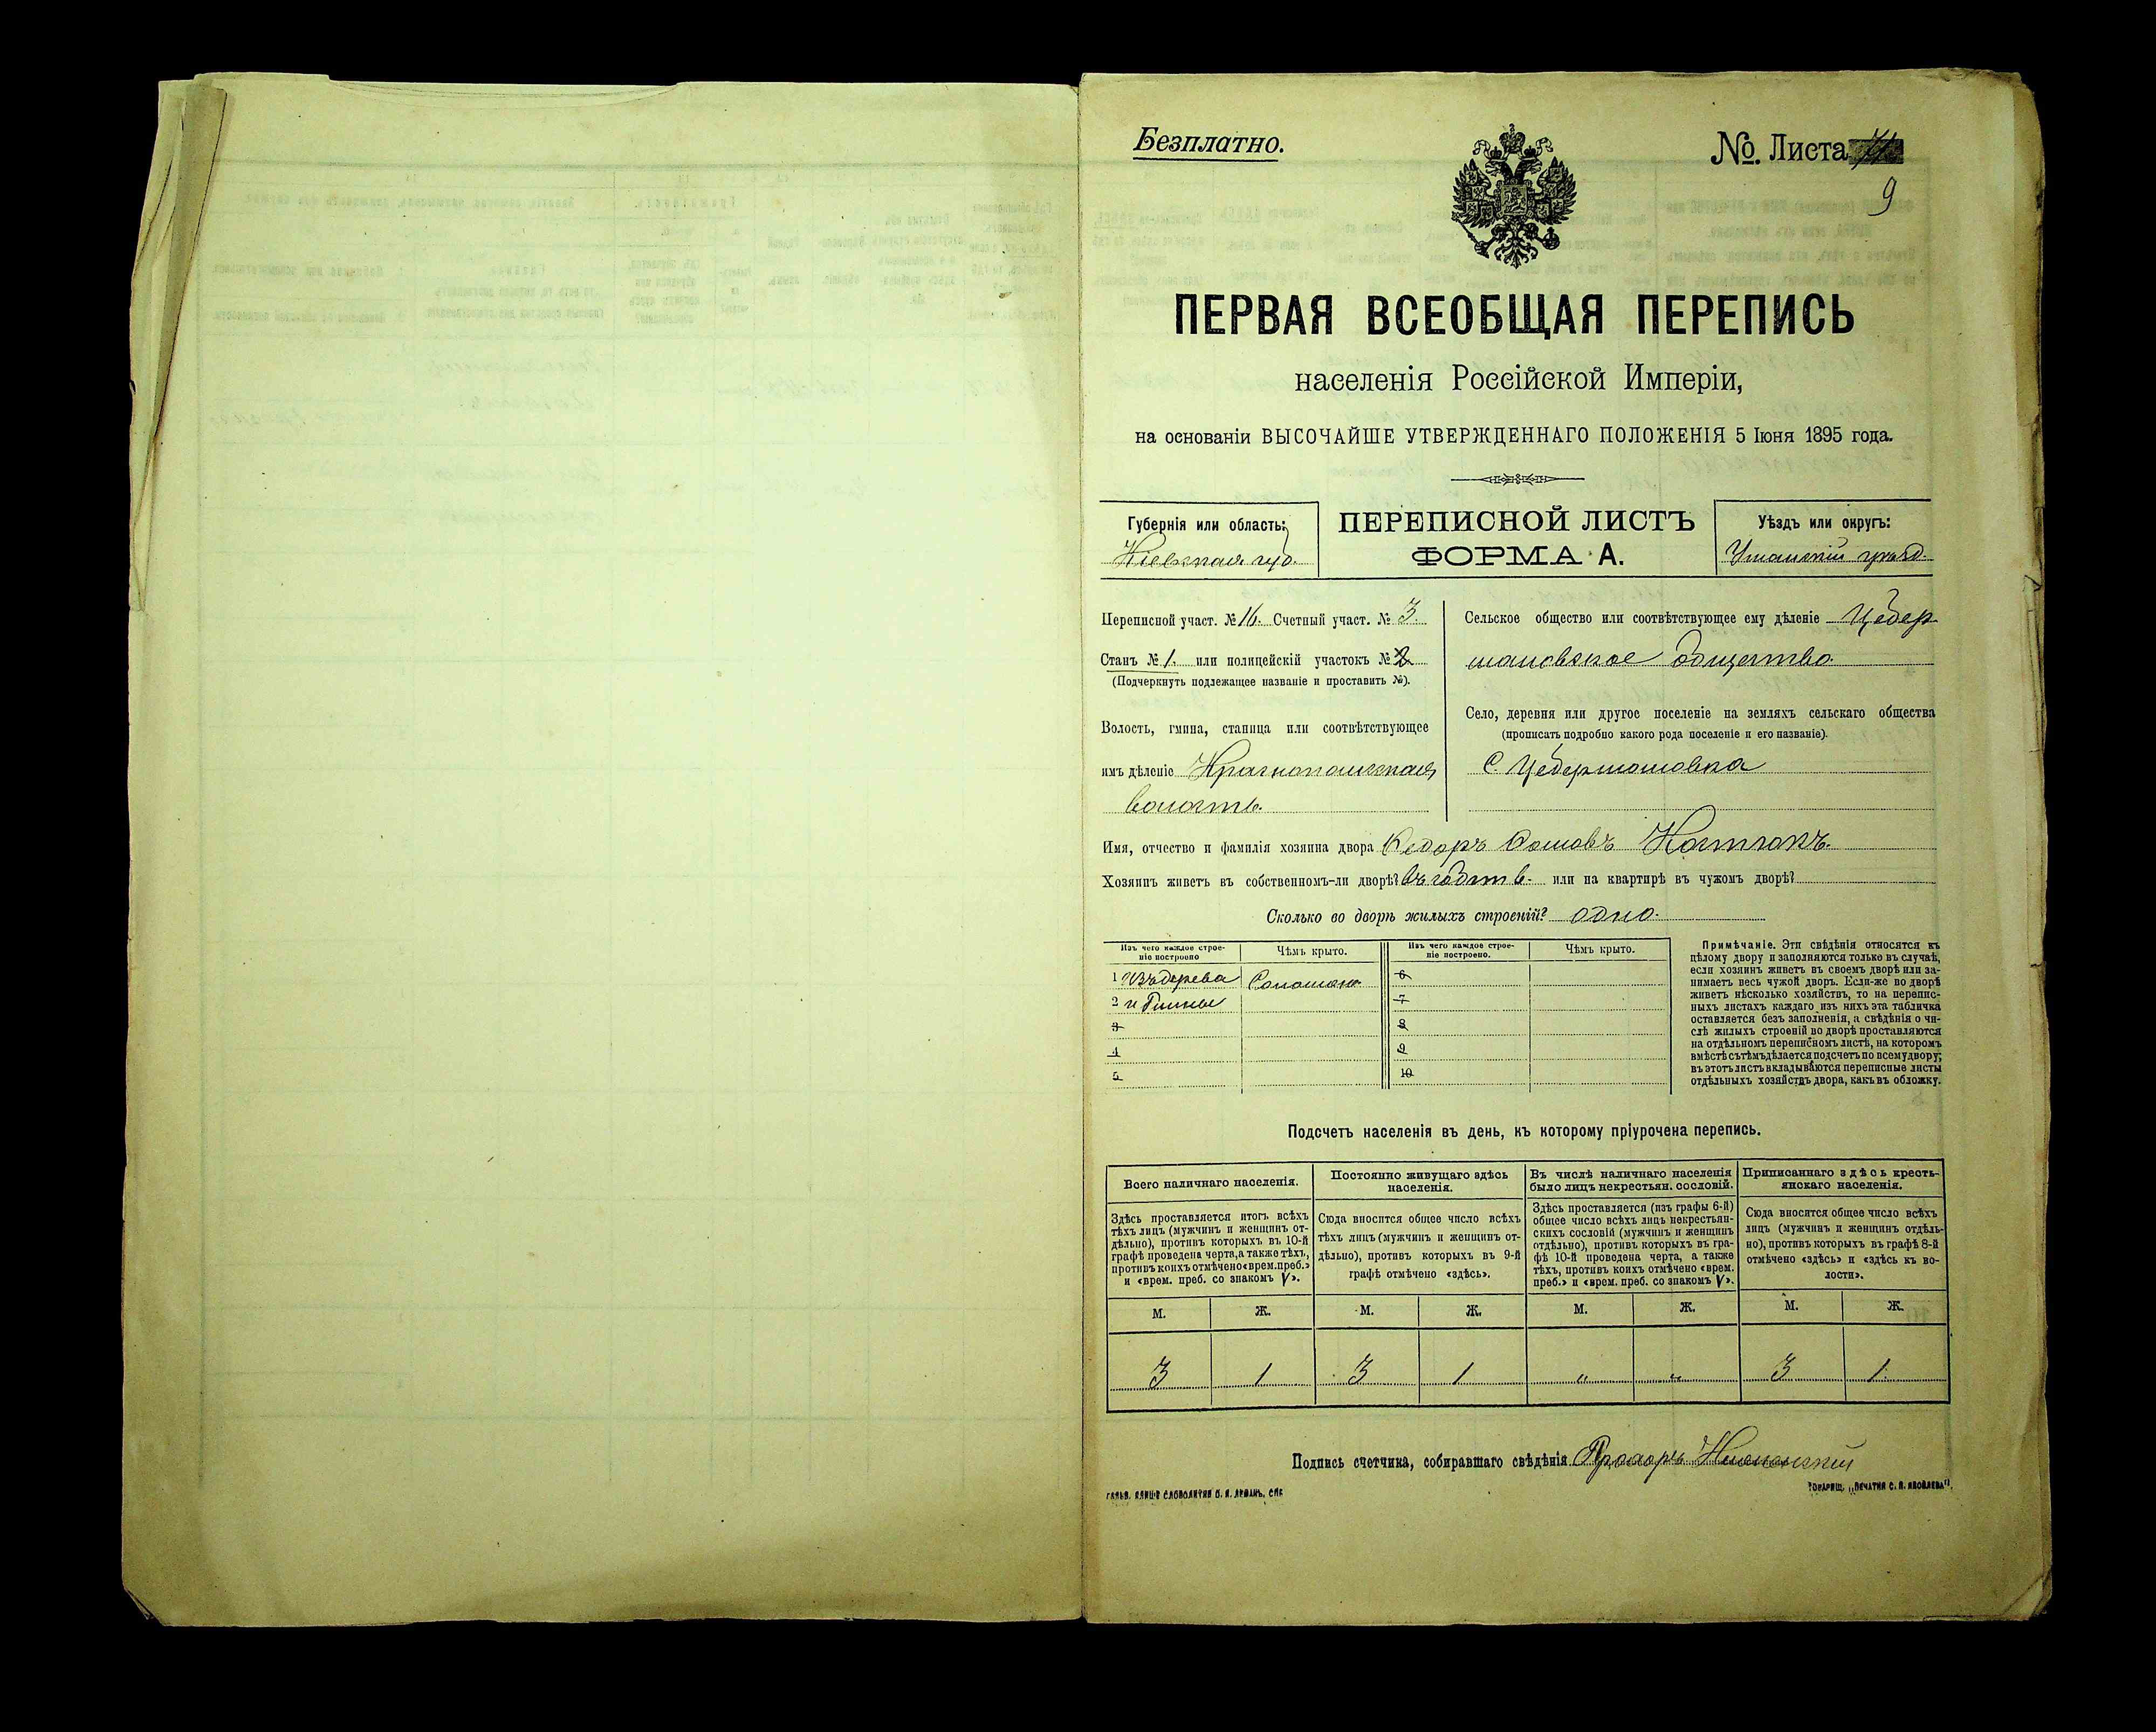 Безплатно.
№. Листа
9
ПЕРВАЯ ВСЕОБЩАЯ ПЕРЕПИСЬ
населенія Россійской Имперіи,
на основаніи ВЫСОЧАЙШЕ УТВЕРЖДЕННАГО ПОЛОЖЕНІЯ 5 Іюня 1895 года.
Губернія или область:
Кіевская губ.
ПЕРЕПИСНОЙ ЛИСТЪ
ФОРМА А.
Уѣздъ или округъ:
Уманскій уѣздъ.
Переписной участ. № 16. Счетный участ. № 3.
Станъ № 1. или полицейскій участокъ № 2
(Подчеркнуть подлежащее названіе и проставить №).
Волость, гмина, станица или соотвѣтствующее
имъ дѣленіе Краснопольская
волость.
Сельское общество или соотвѣтствующее ему дѣленіе Цебер
мановское общество.
Село, деревня или другое поселеніе на земляхъ сельскаго общества
(прописать подробно какого рода поселеніе и его названіе).
С. Цебермановка
Имя, отчество и фамилія хозяина двора Федоръ
Хозяинъ живетъ въ собственномъ-ли дворѣ? въ собств. или на квартирѣ въ чужомъ дворѣ?
Сколько во дворѣ жилыхъ строеній? одно.
Изъ чего каждое строе-
ніе построено
Чѣмъ крыто.
Изъ чего каждое строе-
ніе построено.
Чѣмъ крыто.
1 Изъ дерева Соломою
2 и глины
3
4
5
6
7
8
9
10
Примѣчаніе. Эти свѣдѣнія относятся къ
цѣлому двору и заполняются только въ случаѣ,
если хозяинъ живетъ въ своемъ дворѣ или за-
нимаетъ весь чужой дворъ. Если-же во дворѣ
живетъ нѣсколько хозяйствъ, то на перепис-
ныхъ листахъ каждаго изъ нихъ эта табличка
оставляется безъ заполненія, а свѣдѣнія о чи-
слѣ жилыхъ строеній во дворѣ проставляются
на отдѣльномъ переписномъ листѣ, на которомъ
вмѣстѣ съ тѣмъ дѣлается подсчетъ по всему двору;
въ этотъ листъ вкладываются переписные листы
отдѣльныхъ хозяйствъ двора, какъ въ обложку.
Подсчетъ населенія въ день, къ которому пріурочена перепись.
Всего наличнаго населенія.
Здѣсь проставляется итогъ всѣхъ
тѣхъ лицъ (мужчинъ и женщинъ от-
дѣльно), противъ которыхъ въ 10-й
графѣ проведена черта, а также тѣхъ,
противъ коихъ отмѣчено «врем. преб.»
и «врем. преб. со знакомъ V».
Постоянно живущаго здѣсь
населенія.
Сюда вносится общее число всѣхъ
тѣхъ лицъ (мужчинъ и женщинъ от-
дѣльно), противъ которыхъ въ 9-й
графѣ отмѣчено «здѣсь».
Въ числѣ наличнаго населенія
было лицъ некрестьян. сословій.
Здѣсь проставляется (изъ графы 6-й)
общее число всѣхъ лицъ некрестьян-
скихъ сословій (мужчинъ и женщинъ
отдѣльно), противъ которыхъ въ гра-
фѣ 10-й проведена черта, а также
тѣхъ, противъ коихъ отмѣчено «врем.
преб.» и «врем. преб. со знакомъ V».
Приписаннаго здѣсь кресть-
янскаго населенія.
Сюда вносится общее число всѣхъ
лицъ (мужчинъ и женщинъ отдѣль-
но), противъ которыхъ въ графѣ 8-й
отмѣчено «здѣсь» и «здѣсь къ во-
лости».
М. Ж. М. Ж. М. Ж. М. Ж.
3 1 3 1 " " 3 1
Подпись счетчика, собиравшаго свѣдѣнія Прохоръ
ТОВАРИЩ. „ПЕЧАТНЯ С. П. ЯКОВЛЕВА"